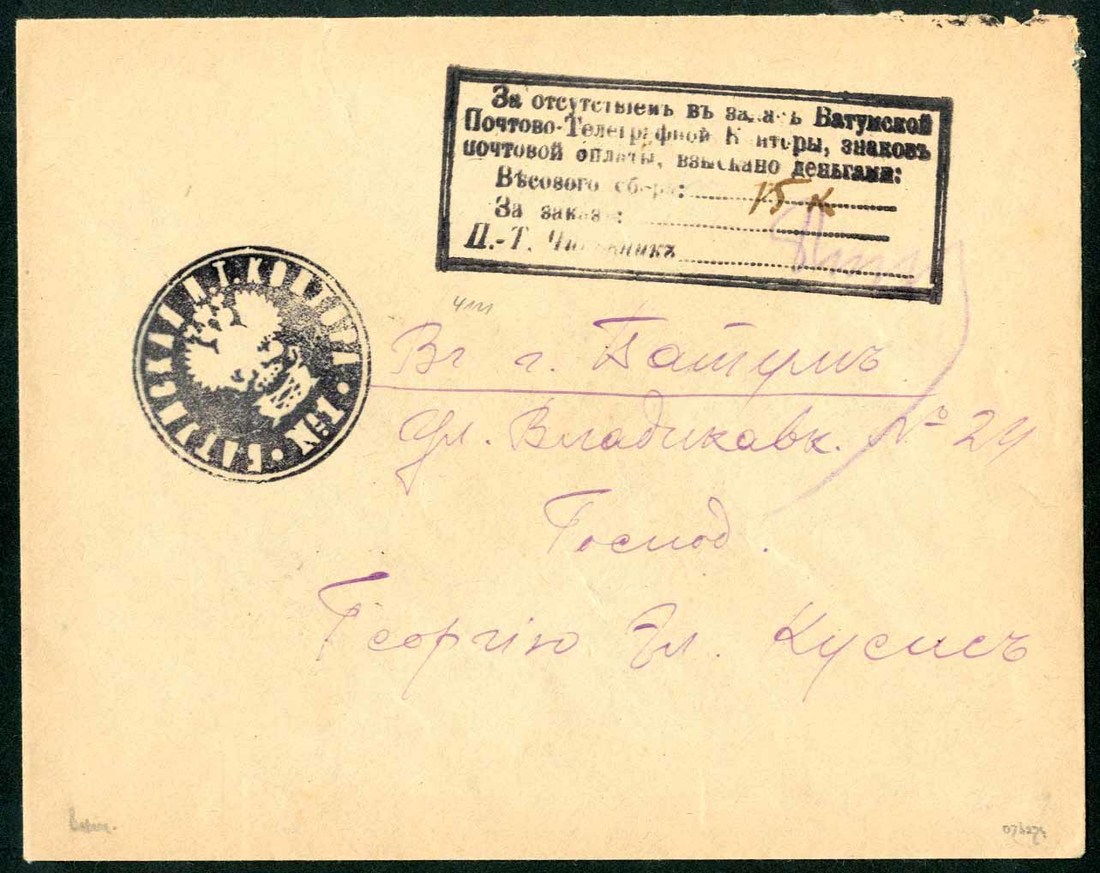 За отсутствіемъ въ Батумской
Почтово-Телеграфной Конторы, знаковъ
почтовой оплаты, взыскано деньгами:
Вѣсового сбора: 15 к
За заказъ:
П.-Т. Чиновникъ
БАТУМСКАЯ П.Т. КОНТОРА · №1 ·
Въ г. Батумъ
ул. Владикавк. №
Господ.
Георгію Эл. Кусисъ